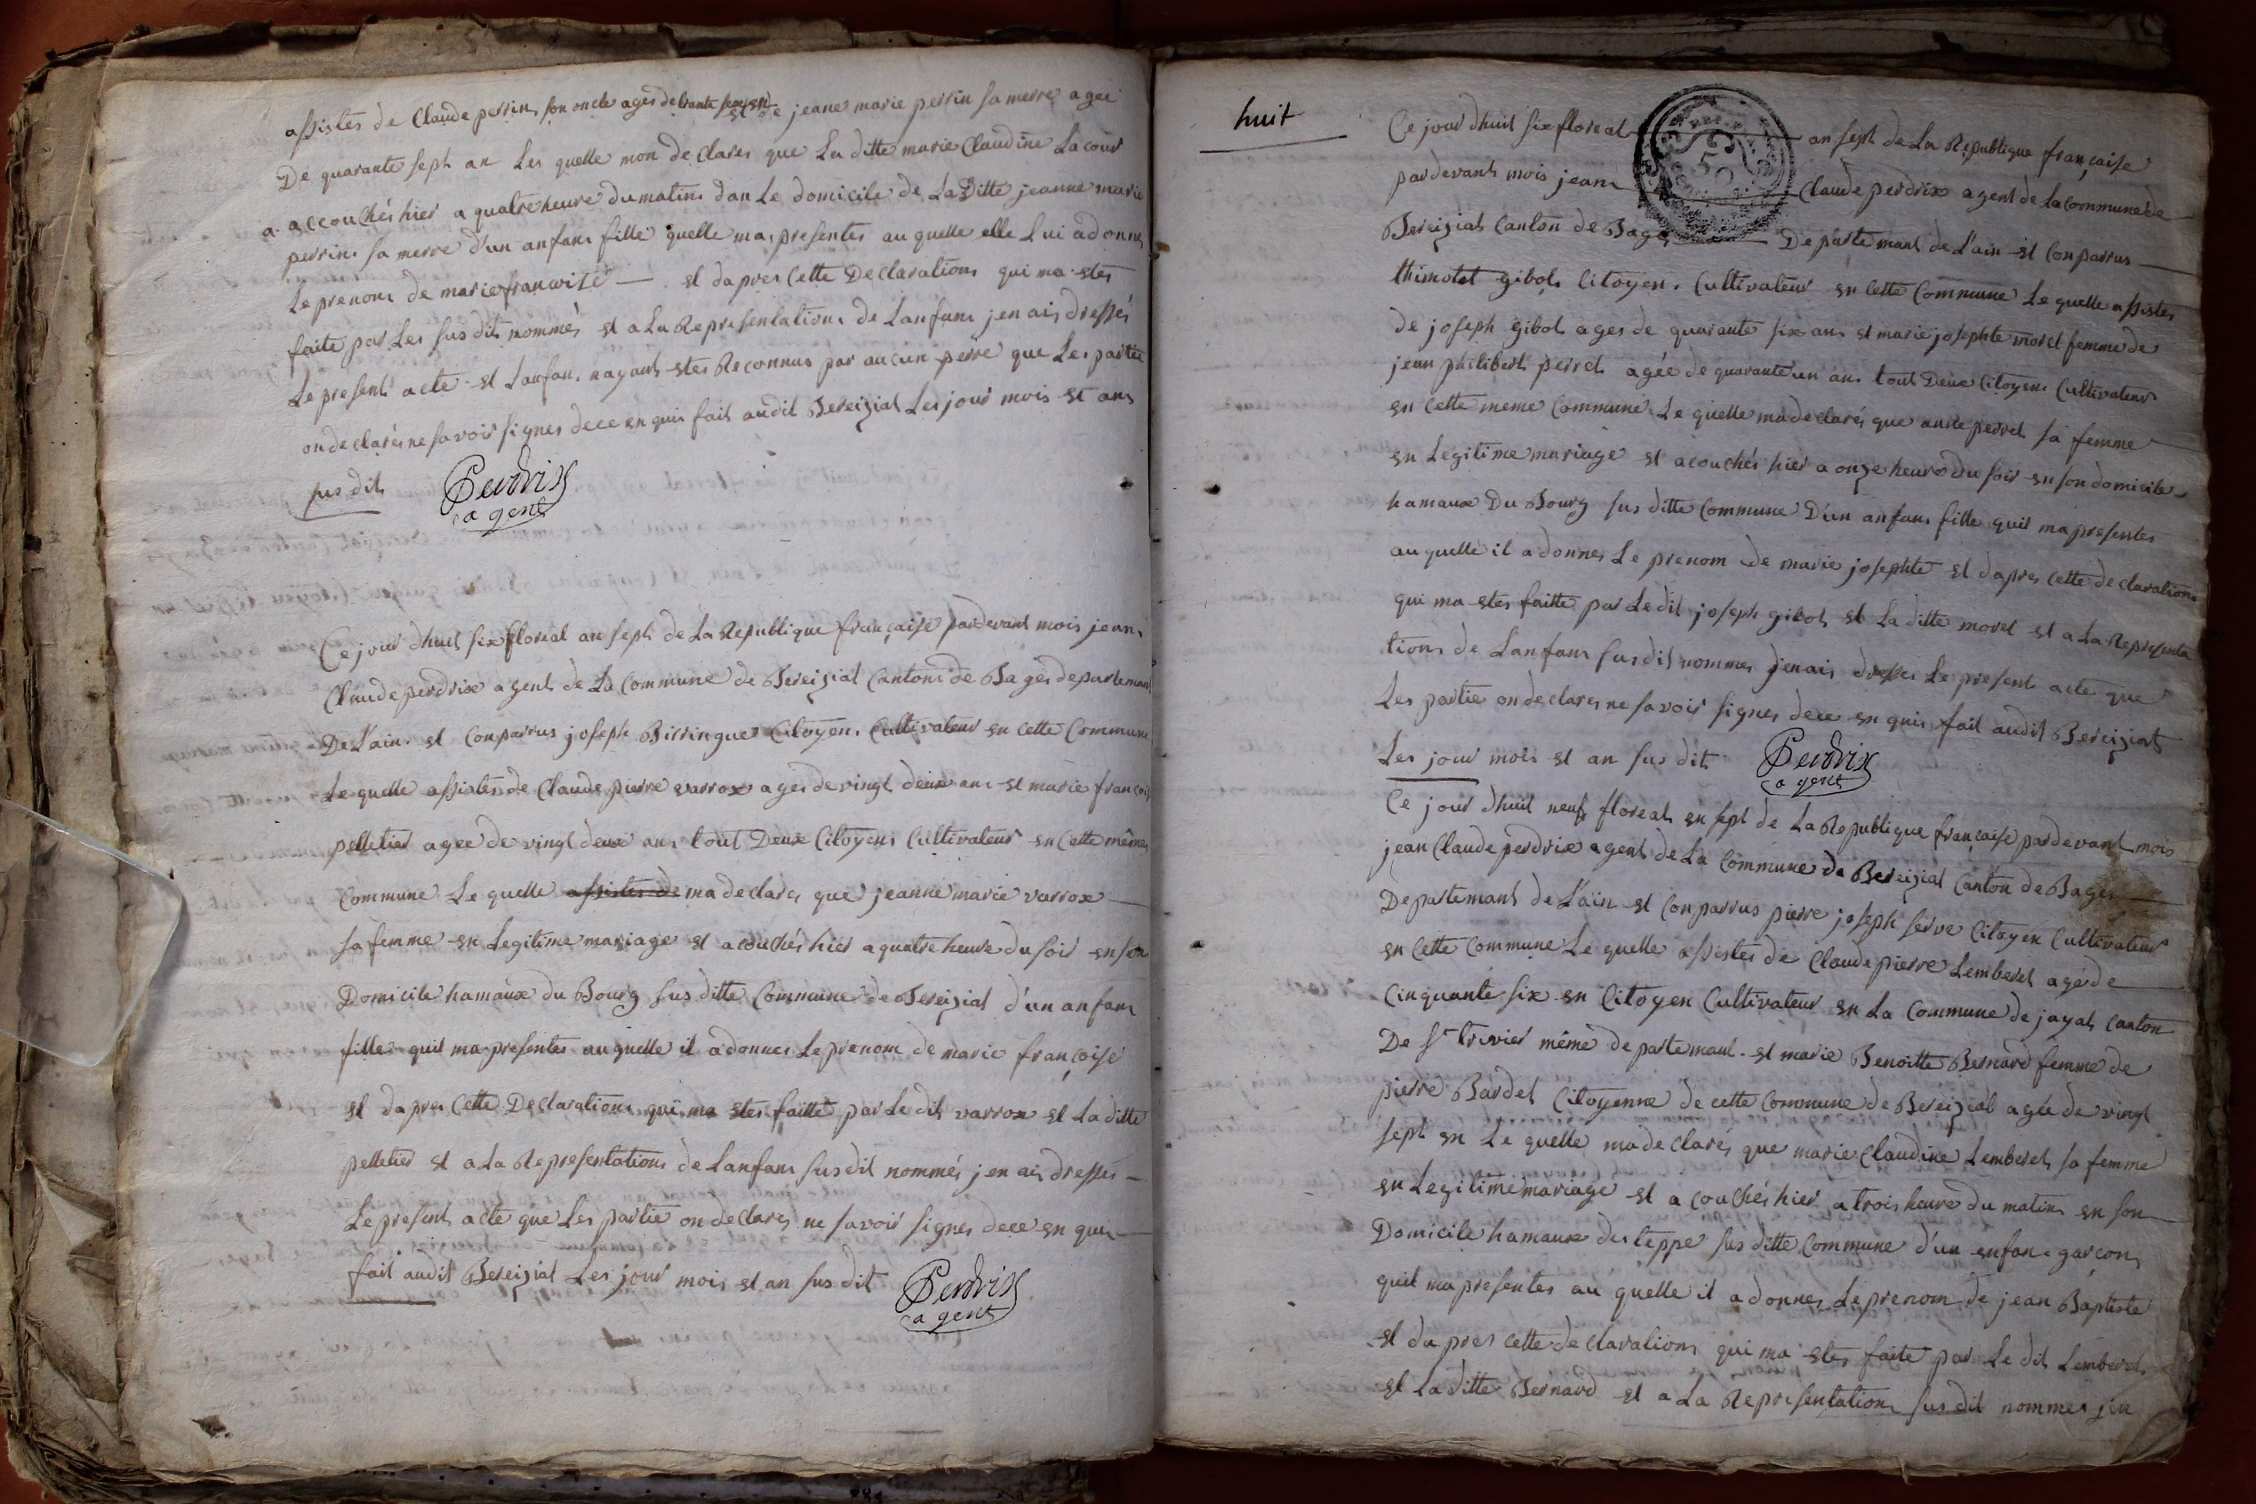 assistés de Claude perrin son oncle ages de trante sept an
et de jeane marie perrin sa merre agee
De quarante sept an Les quelle mon de clares que La ditte marie Claudine Lacour
a accouchés hier a quatre heure du matins dan Le domicile de La Ditte jeanne marie
perrin sa merre d'un anfans fille quelle ma presentes au quelle elle Lui a donnes
Le prenom de marie francoize et dapres Cette Declarations qui ma estes
faite par Les sus dits nommés et a La Representations de Lanfans jen ais dressés
Le present acte et Lanfan nayant estes Reconnus par aucun perre que Les partie
on declarés ne savoir signes dece en quis fait audit Bereiziat Les jour mois et ans
sus dit
Perdrix
agent
Ce jour dhuit six floreal an sept de La Republique française pardevant mois jean
Claude perdrix agent de La Commune de Bereiziat Canton de Bages departemant
De L'ain et Conparrus joseph Birringue Citoyen Cultivateur en cette Commune
Le quelle assistes de Claude pierre varrox ages de vingt deux ans et marie francois
pelletier agee de vingt deux ans tout Deux Citoyens Cultivateur en Cette même
Commune Le quelle assistes de ma declares que jeanne marie varrox
sa femme en Legitime mariage et acouchés hier a quatre heure du soir en son
Domicile hamaux du Bourg sus ditte Commune de Bereiziat d'un anfans
fille quil ma presentes au quelle il a donnes Le prenom de marie françoise
et dapres Cette Declarations qui ma estes faitte par Le dit varrox et La ditte
pelletier et a La Representations de Lanfans sus dit nommés jen ais dresses
Le present acte que Les partie on declares ne savoir signes dece en quis
fait audit Bereiziat Les jour mois et an sus dit
Perdrix
agent
huit
Ce jour dhuit six floreal an sept de La Republique française
pardevant mois jean Claude perdrix agent de La Commune de
Bereiziat Canton de Bages Departemant de L'ain et Conparrus
thimotet gibot Citoyen Cultivateur en Cette Commune Le quelle assistes
de joseph gibot ages de quarante six ans et marie josephte morel femme de
jean philibert perret agée de quarante un ans tout Deux Citoyens Cultivateur
en Cette meme Commune Le quelle ma declarés que anne perret sa femme
en Legitime mariage et acouchés hier a onze heure du soir en son domicile
hamaux Du Bourg sus ditte Commune D'un anfans fille quil ma presentes
au quelle il a donnes Le prenom de marie josephte et dapres Cette declarations
qui ma estes faitte par Le dit joseph gibot et La ditte morel et a La Representa
tions de Lanfans sus dit nommes jen ais dresses Le present acte que
Les partie on declares ne savoir signes dece en quis fait audit Bereiziat
Les jour mois et an sus dit
Perdrix
agent
Ce jour dhuit neuf floreal en sept de La Republique française pardevant mois
jean Claude perdrix agent de La Commune de Bereiziat Canton de Bages
Departemant de L'ain et Conparrus pierre joseph serve Citoyen Cultivateur
en Cette Commune Le quelle assistes de Claude pierre Lemberet agé de
Cinquante six en Citoyen Cultivateur en La Commune de jayat Canton
De St trivier même departemant et marie Benoitte Bernard femme de
pierre Bardet Citoyenne de cette Commune de Bereiziat agée de vingt
sept en Le quelle ma declarés que marie Claudine Lemberet sa femme
en Legitime mariage et acouchés hier a trois heure du matins en son
Domicile hamaux des teppe sus ditte Commune d'un enfans garcon
quil ma presentes au quelle il a donnes Le prenom de jean Baptiste
et dapres cette declarations qui ma estes faite par Le dit Lemberet
et La ditte Bernard et a La Representations sus dit nommes jen